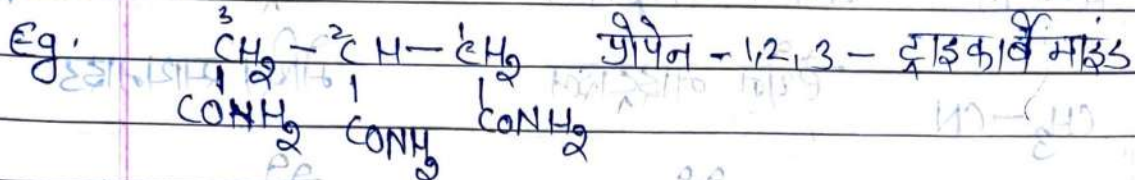 Eg. ³CH₂ - ²CH - ¹CH₂ प्रोपेन - 1,2,3 - ट्राइकार्बेमाइड
CONH₂ CONH₂ CONH₂
CH₃ - CN